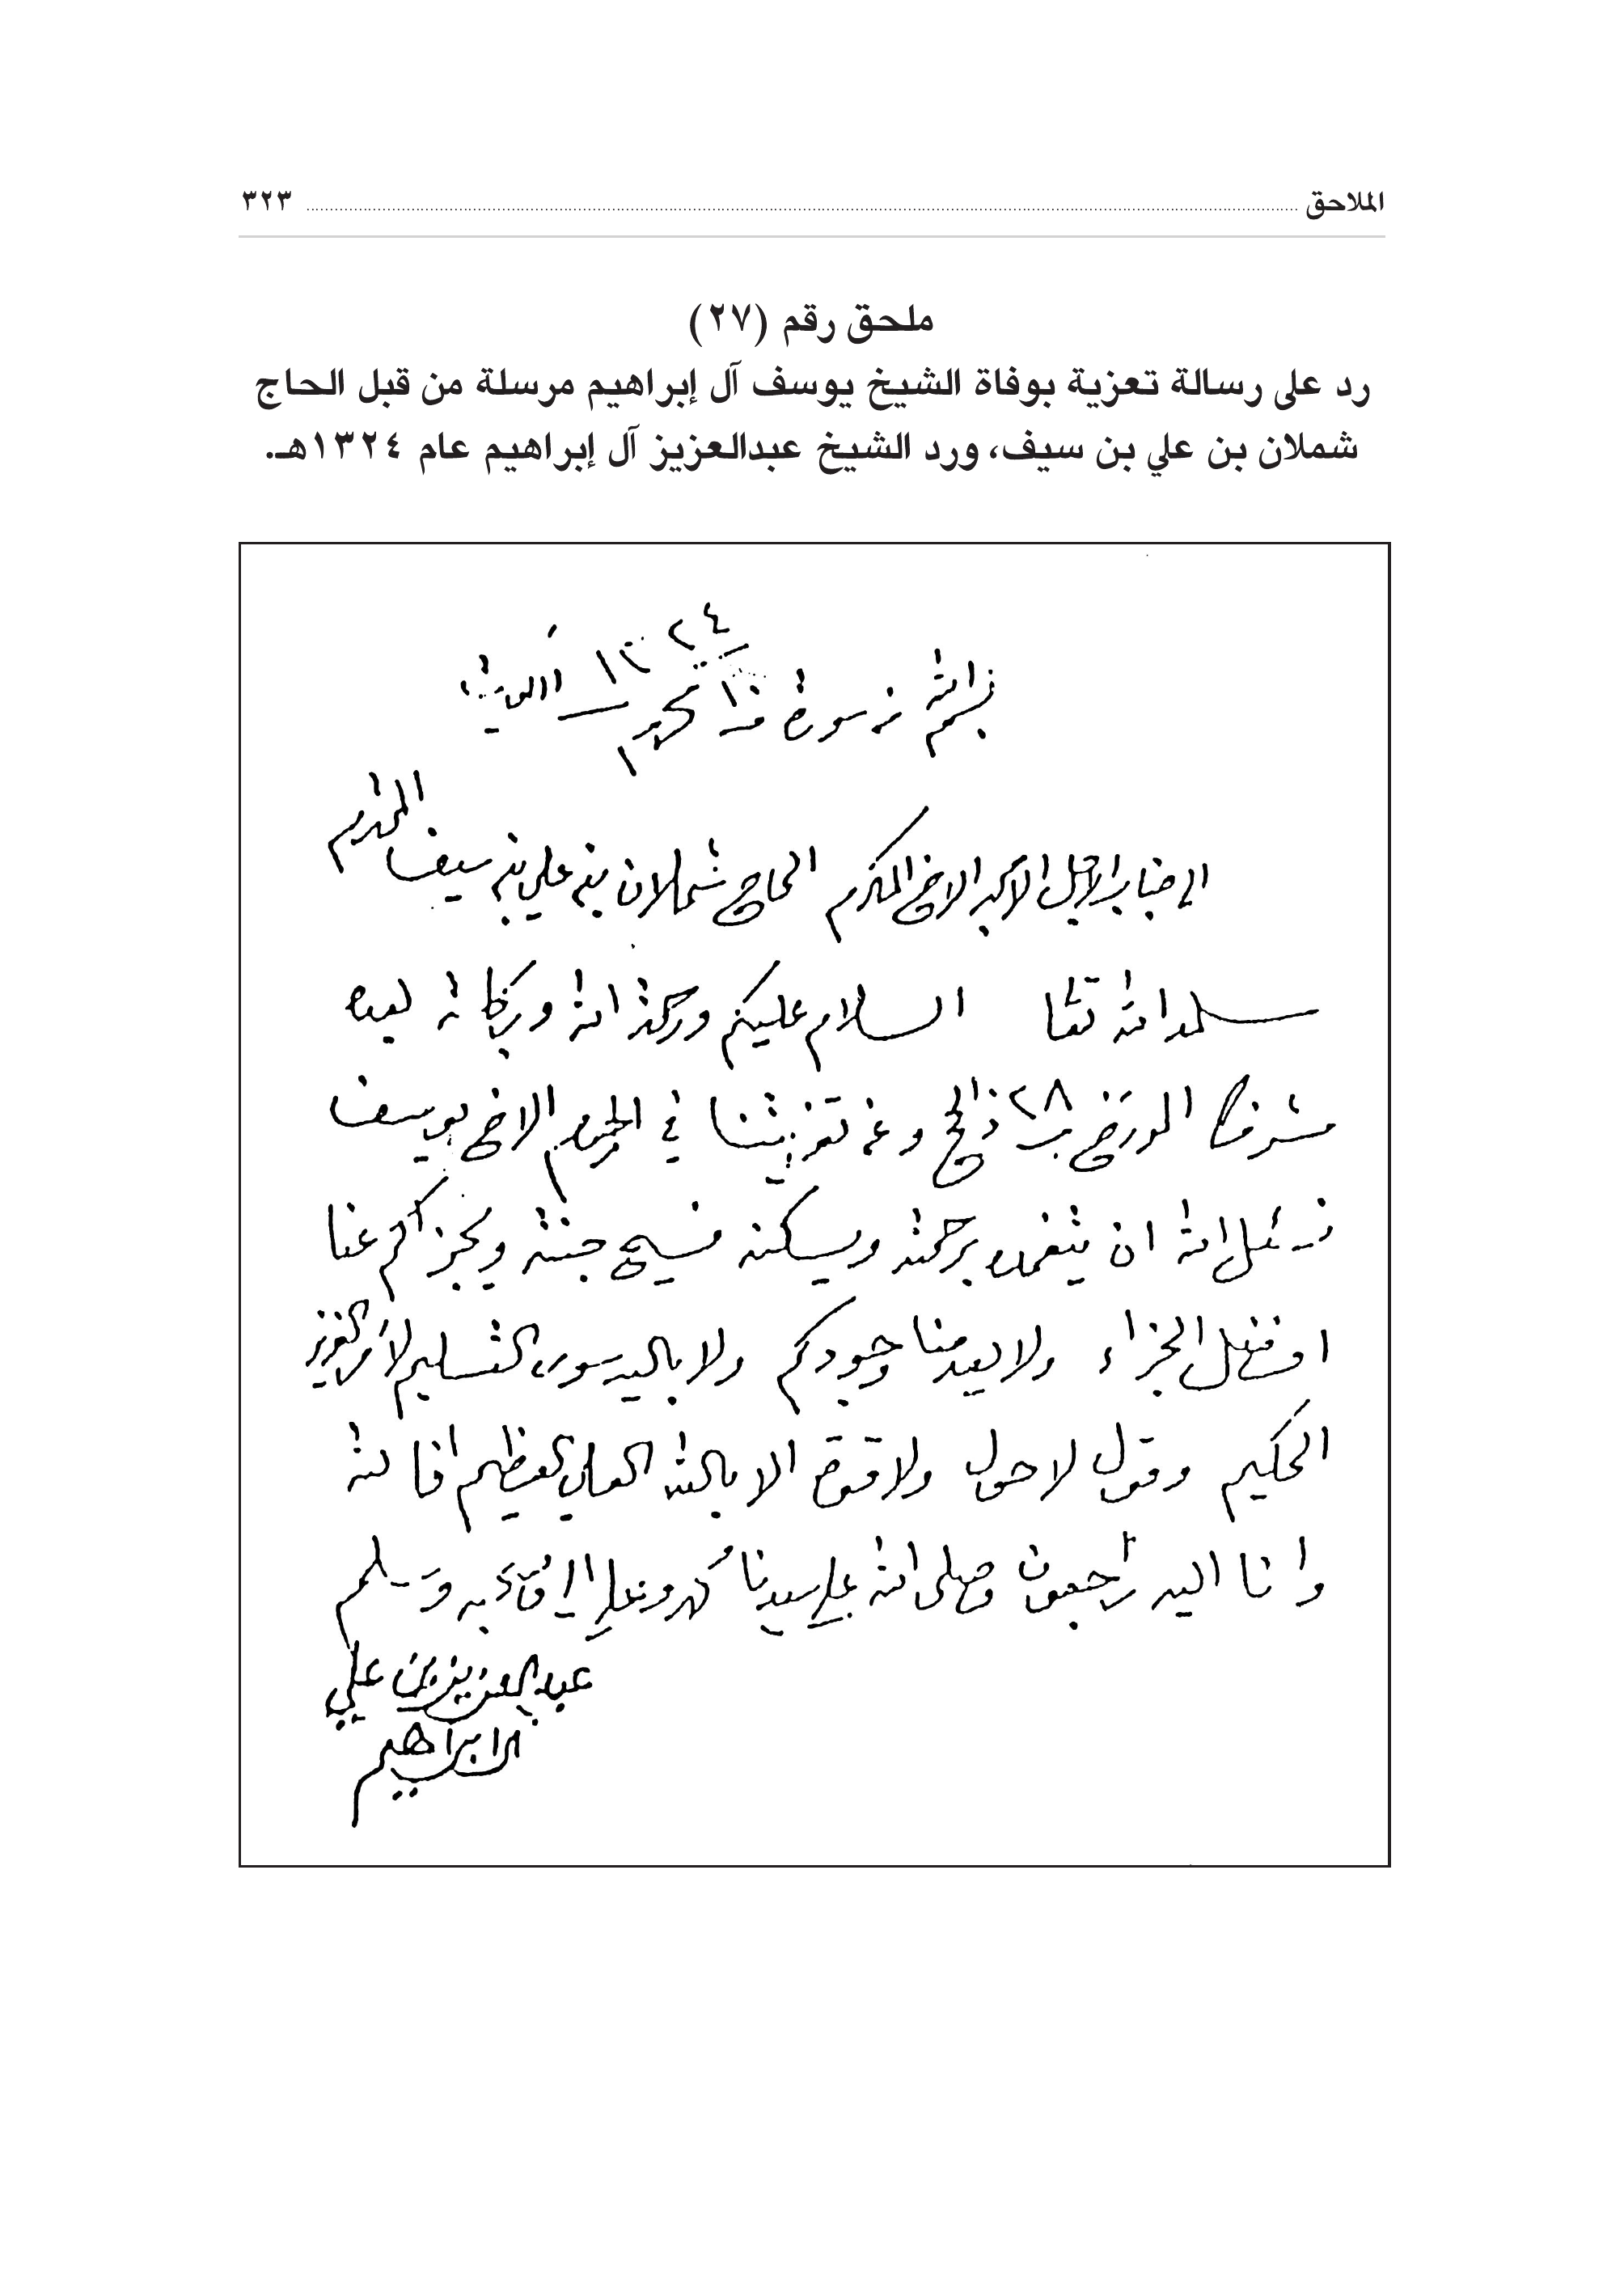 الملاحق ٣٢٣
ملحق رقم (٢٧)
رد على رسالة تعزية بوفاة الشيخ يوسف آل إبراهيم مرسلة من قبل الحاج
شملان بن علي بن سيف، ورد الشيخ عبدالعزيز آل إبراهيم عام ١٣٢٤هـ.
١٣٢٤
بسم الله
الى جناب الاجل الاكبر الاخ المكرم الحاج شملان بن علي بن سيف المحترم
سلمه الله تعا السلام عليكم ورحمة الله وبركاته لعده
مشرفكم المورخ ٢٨ ذالحج وعن تعزيتنا في المرحوم الاخ يوسف
نسئل الله ان يتغمده برحمته ويسكنه فسيح جنته ويجزاكم عنا
افضل الجزاء ولا يعدمنا وجودكم ولا باليد سوى التسليم لامر العزيز
الحكيم ونقول لا حول ولا قوة الا بالله العلي العظيم انا لله
وانا اليه راجعون وصلى الله على سيدنا محمد وعلى وسلم
عبدالعزيز بن علي
ال ابراهيم